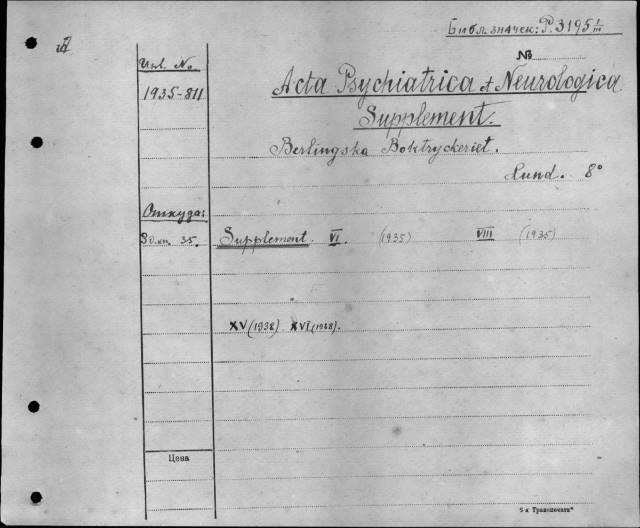 Библ. значек: P. 3195 I/III
№
Инв. No
1935-811
Acta Psychiatrica et Neurologica
Supplement.
Berlingska Boktryckeriet.
Lund. 8°
Откуда:
35.
Supplement. VI. (1935) VIII (1935)
XV (1938) XVI (1938).
Цена
5-я Транспечать"